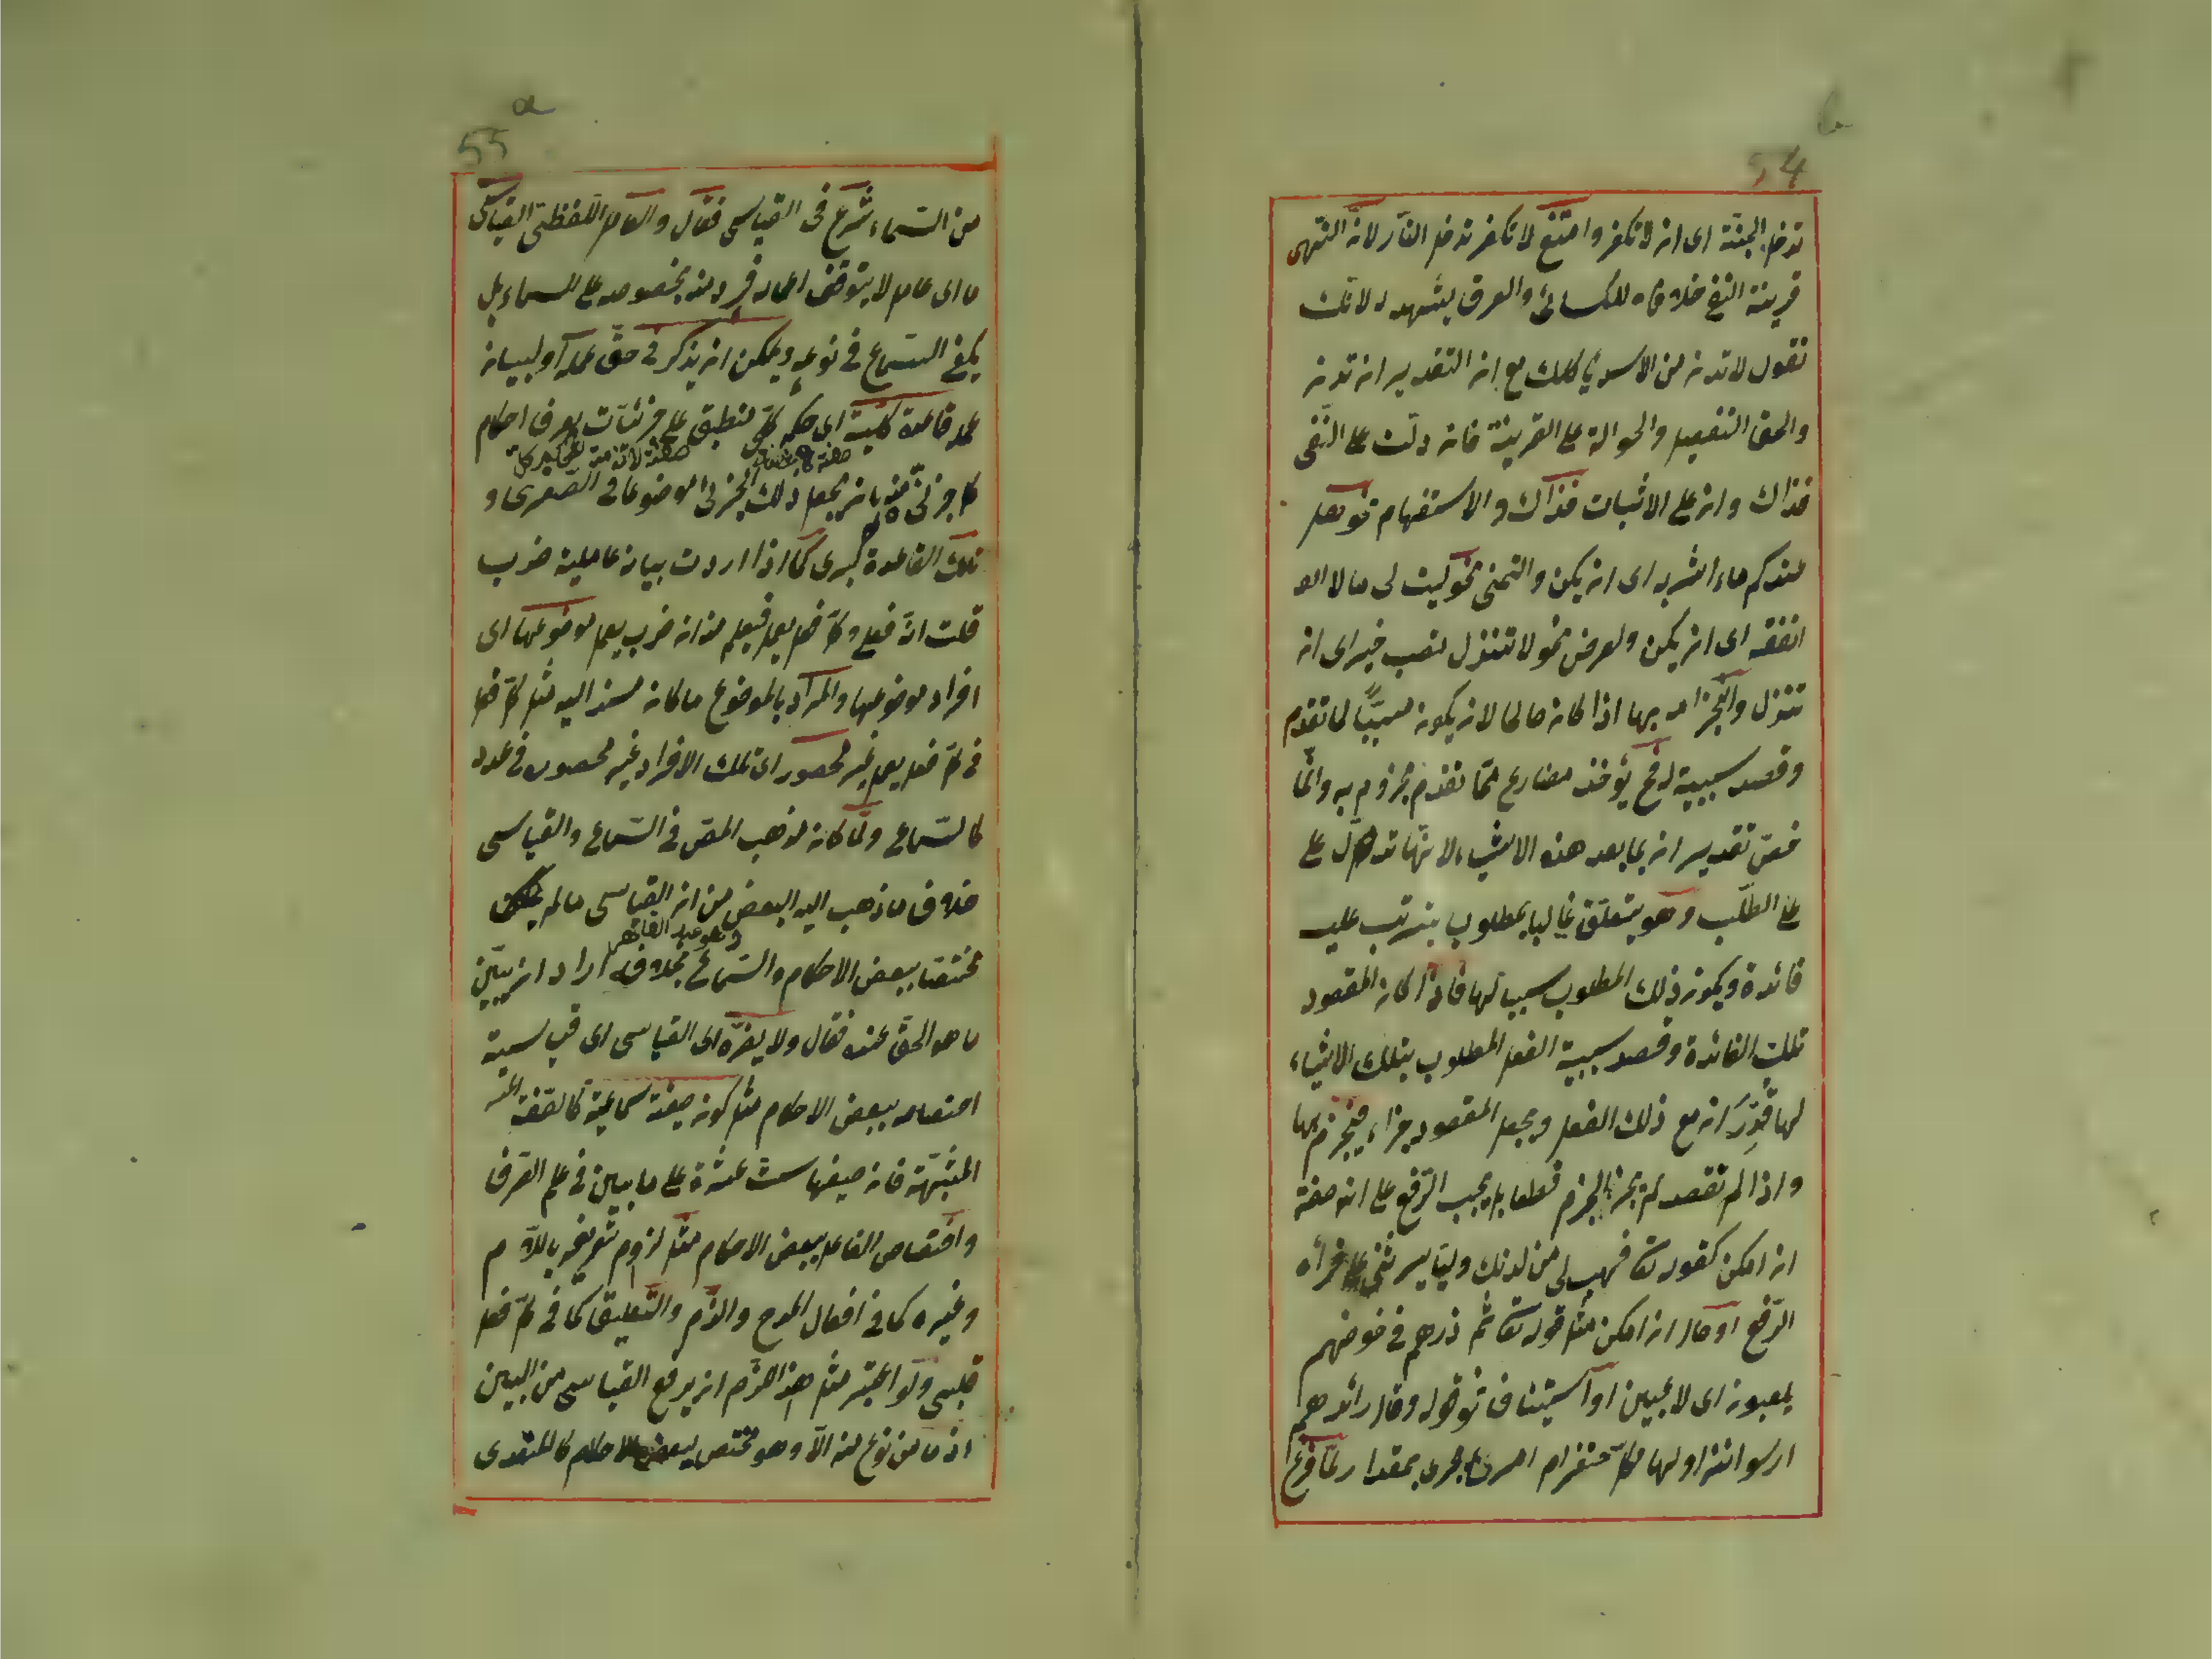 54
b
تدخل الجنّة اى ان لا تكفر وامتنع لا تكفر تدخل النّار لانّ النّهى
قرينة النفى خلافا للكسائى والعرف يشهد له لانّك
تقول لا تدن من الاسد ياكلك مع ان التقدير ان تدن
والحق التفصيل والحوالة على القرينة فان دلّت على النّفى
فذاك وان على الاثبات فذاك والاستفهام نحو هل
عندكم ماء اشربه اى ان يكن والتمنى نحو ليت لى مالا
انفقه اى ان يكن والعرض نحو لا تنزل تصب خيرا اى ان
تنزل والجزاء بها اذا كان صالحا لان يكون مسببّا لما تقدم
وقصد سببية له فح يؤخذ مضارع ممّا تقدم مجزوم به وانّما
خصّ تقدير ان بما بعد هذه الاشياء لانّها تدل على
على الطّلب وهو يتعلّق غالبا بمطلوب يترتب عليه
فائدة ويكون ذلك المطلوب سببا لها فاذا كان المقصود
تلك الفائدة وقصد سببية الفعل المطلوب بتلك الاشياء
لها قُدِّرَ ان مع ذلك الفعل ويجعل المقصود جزاء فينجزم بها
واذا لم تقصد لم يجز الجزم قطعا بل يجب الرّفع على انه صفة
ان امكن كقوله تعا فهب لى من لدنك وليّا يرثنى على قراءة
الرّفع او حال ان امكن مثل قوله تعا ثم ذرهم فى خوضهم
يلعبون اى لاعبين او استيناف نحو قوله وقال رائدهم
ارسوا نزاولها فكلّ حتف امرئ يجرى بمقدار ولمّا فرغ
55
a
من السّماعى شرع فى القياسى فقال والعامل اللّفظىّ القياسى
ما اى عامل لا يتوقف اعمال فرد منه بخصوصه على السماع بل
يكفى السّماع فى نوعه ويمكن ان يذكر فى حقّ عمله او لبيان
عمله قاعدة كلّية اى حكم كلّى منطبق على جزئيّات يعرف احكام
كل جزئى منه بان يجعل ذلك الجزئى موضوعا فى الصّغرى و
تلك القاعدة كبرى كما اذا اردت بيان عاملية ضرب
قلت انّه فعل وكلّ فعل يعمل فيعلم منه ان ضرب يعمل موضوعها اى
افراد موضوعها والمراد بالموضوع ما كان مسند اليه مثل كلّ فعل
فى كلّ فعل يعمل غير محصور اى تلك الافراد غير محصورة فى عدد
كالسّماعى ولمّا كان مذهب المص فى السّماعى والقياسى
خلاف ما ذهب اليه البعض من ان القياسى ما لم يكن
وهو عبد القاهر
مختصّا ببعض الاحكام والسّماعى بخلافه اراد ان يبيّن
ما هو الحقّ عنده فقال ولا يضرّه اى القياسى اى قياسيته
اختصاصه ببعض الاحكام مثل كون صيغة سماعيّة كالصّفة
المشبّهة فان صيغها ستّ عشرة على ما بين فى علم الصّرف
واختصاص الفاعل ببعض الاحكام مثل لزوم تعريفه باللّام
وغيره كما فى افعال المدح والذّم والتّعليق كما فى كلّ فعل
قلبى ولو اعتبر مثل هذا لزم ان يرفع القياسى من البين
اذ ما من نوع منه الّا وهو مختص ببعض الاحكام كالمتعدى